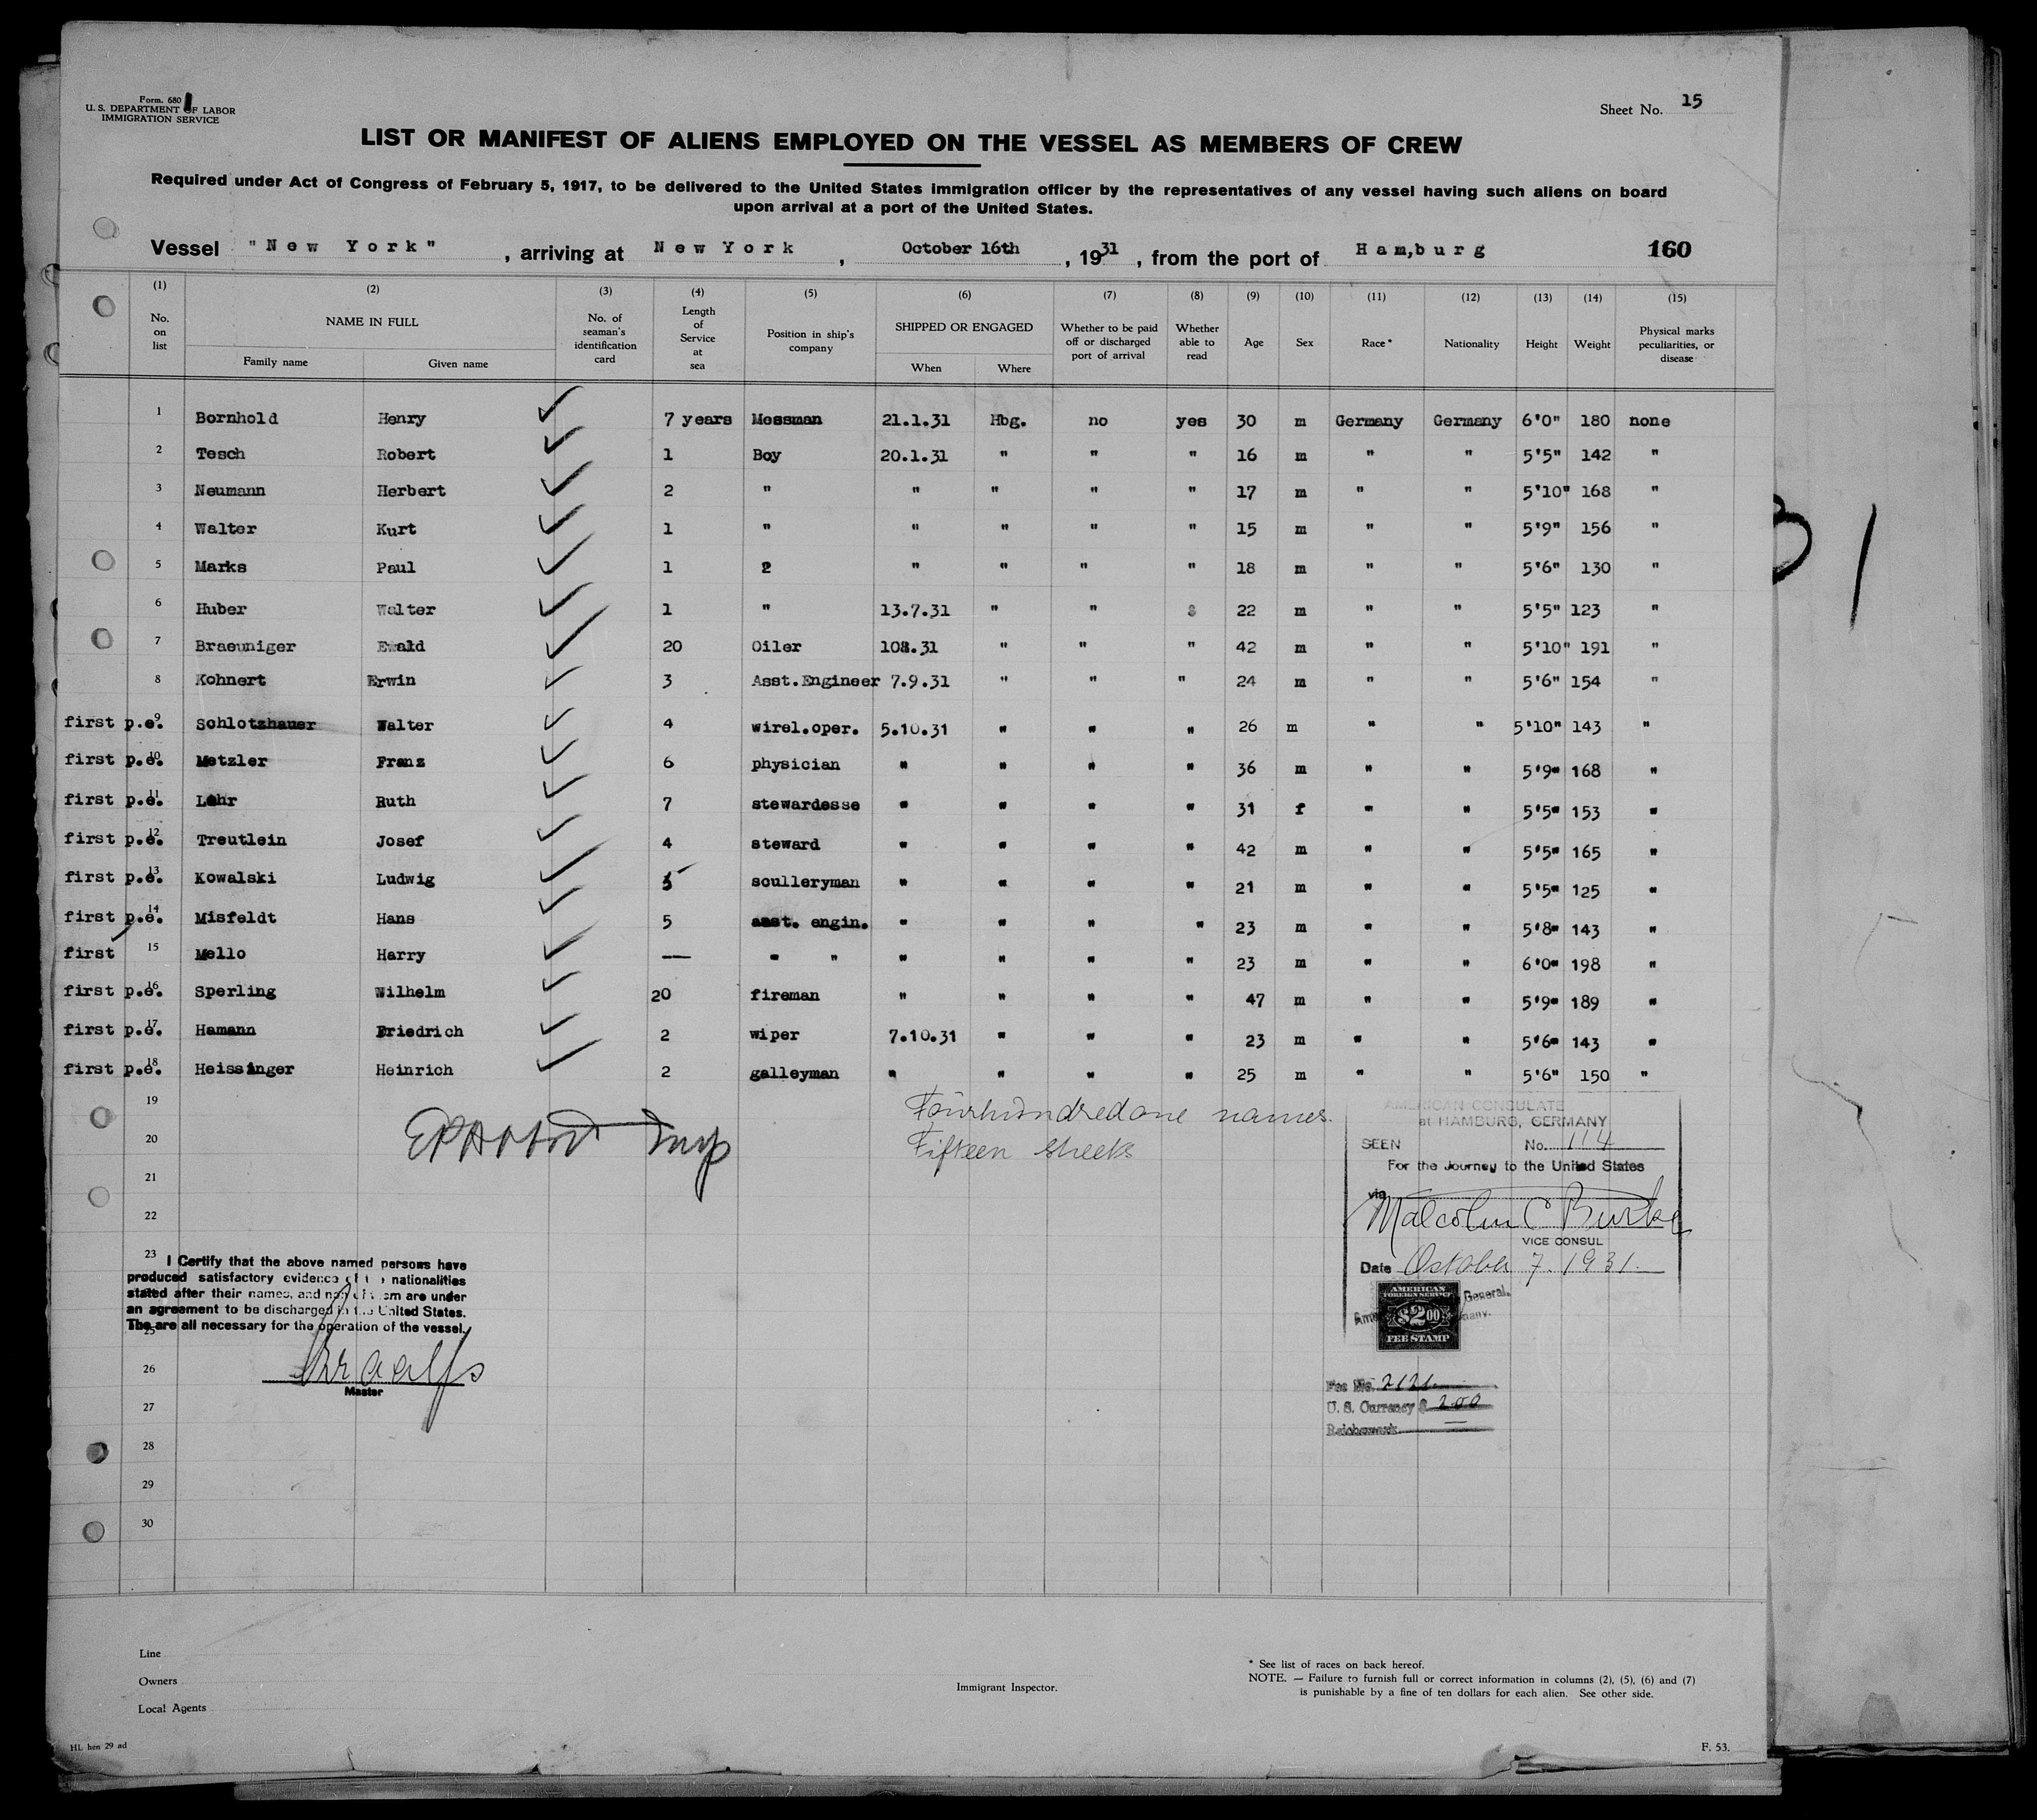 Form. 680
U. S. DEPARTMENT OF LABOR
IMMIGRATION SERVICE
Sheet No. 15
LIST OR MANIFEST OF ALIENS EMPLOYED ON THE VESSEL AS MEMBERS OF CREW
Required under Act of Congress of February 5, 1917, to be delivered to the United States immigration officer by the representatives of any vessel having such aliens on board
upon arrival at a port of the United States.
Vessel "New York" , arriving at New York , October 16th , 1931 , from the port of Ham,burg 160
(1) (2) (3) (4) (5) (6) (7) (8) (9) (10) (11) (12) (13) (14) (15)
No. on list NAME IN FULL Family name Given name No. of seaman's identification card Length of Service at sea Position in ship's company SHIPPED OR ENGAGED When Where Whether to be paid off or discharged port of arrival Whether able to read Age Sex Race* Nationality Height Weight Physical marks peculiarities, or disease
1 Bornhold Henry 7 years Messman 21.1.31 Hbg. no yes 30 m Germany Germany 6'0" 180 none
2 Tesch Robert 1 Boy 20.1.31 " " " 16 m " " 5'5" 142 "
3 Neumann Herbert 2 " " " " " 17 m " " 5'10" 168 "
4 Walter Kurt 1 " " " " " 15 m " " 5'9" 156 "
5 Marks Paul 1 2 " " " " 18 m " " 5'6" 130 "
6 Huber Walter 1 " 13.7.31 " " 22 m " " 5'5" 123 "
7 Braeuniger Ewald 20 Oiler 108.31 " " " 42 m " " 5'10" 191 "
8 Kohnert Erwin 3 Asst.Engineer 7.9.31 " " " 24 m " " 5'6" 154 "
first p.e. 9 Schlotzhauer Walter 4 wirel.oper. 5.10.31 " " " 26 m " " 5'10" 143 "
first p.e. 10 Metzler Franz 6 physician " " " " 36 m " " 5'9" 168 "
first p.e. 11 Lohr Ruth 7 stewardesse " " " " 31 f " " 5'5" 153 "
first p.e. 12 Treutlein Josef 4 steward " " " " 42 m " " 5'5" 165 "
first p.e. 13 Kowalski Ludwig 5 sculleryman " " " " 21 m " " 5'5" 125 "
first p.e. 14 Misfeldt Hans 5 asst. engin. " " " " 23 m " " 5'8" 143 "
first 15 Mello Harry — " " " " " " 23 m " " 6'0" 198 "
first p.e. 16 Sperling Wilhelm 20 fireman " " " " 47 m " " 5'9" 189 "
first p.e. 17 Hamann Friedrich 2 wiper 7.10.31 " " " 23 m " " 5'6" 143 "
first p.e. 18 Heissinger Heinrich 2 galleyman " " " " 25 m " " 5'6" 150 "
19
20
21
22
23
25
26
27
28
29
30
Fourhundredone names.
Fifteen sheets
AMERICAN CONSULATE
at HAMBURG, GERMANY
SEEN No. 114
For the Journey to the United States
via
Malcolm C Burke
VICE CONSUL
Date October 7. 1931.
General.
AMERICAN
FOREIGN SERVICE
$2.00
FEE STAMP
Fee No. 2121
U. S. Currency $ 2.00
Reichsmark
I Certify that the above named persons have
produced satisfactory evidence of the nationalities
stated after their names, and non of them are under
an agreement to be discharged in the United States.
The are all necessary for the operation of the vessel.
Master
Line
Owners
Local Agents
Immigrant Inspector.
* See list of races on back hereof.
NOTE. — Failure to furnish full or correct information in columns (2), (5), (6) and (7)
is punishable by a fine of ten dollars for each alien. See other side.
HL hen 29 ad
F. 53.